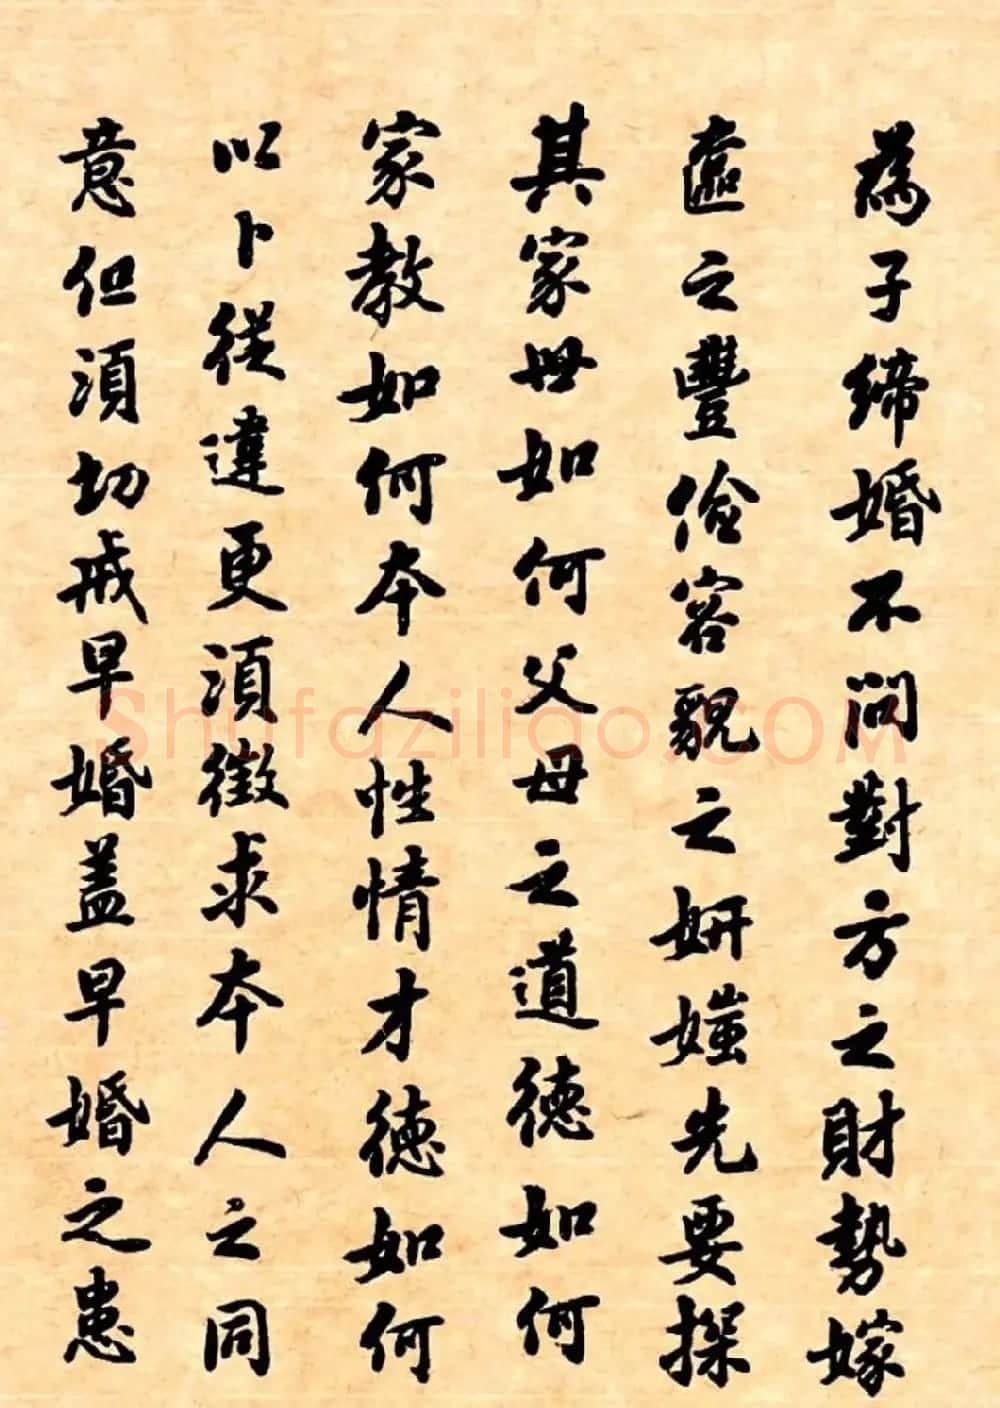 為子締婚不問對方之財勢嫁
奩之豐儉容貌之妍媸先要探
其家世如何父母之道德如何
家教如何本人性情才德如何
以卜從違更須徵求本人之同
意但須切戒早婚蓋早婚之患
Shufaziliao.COM